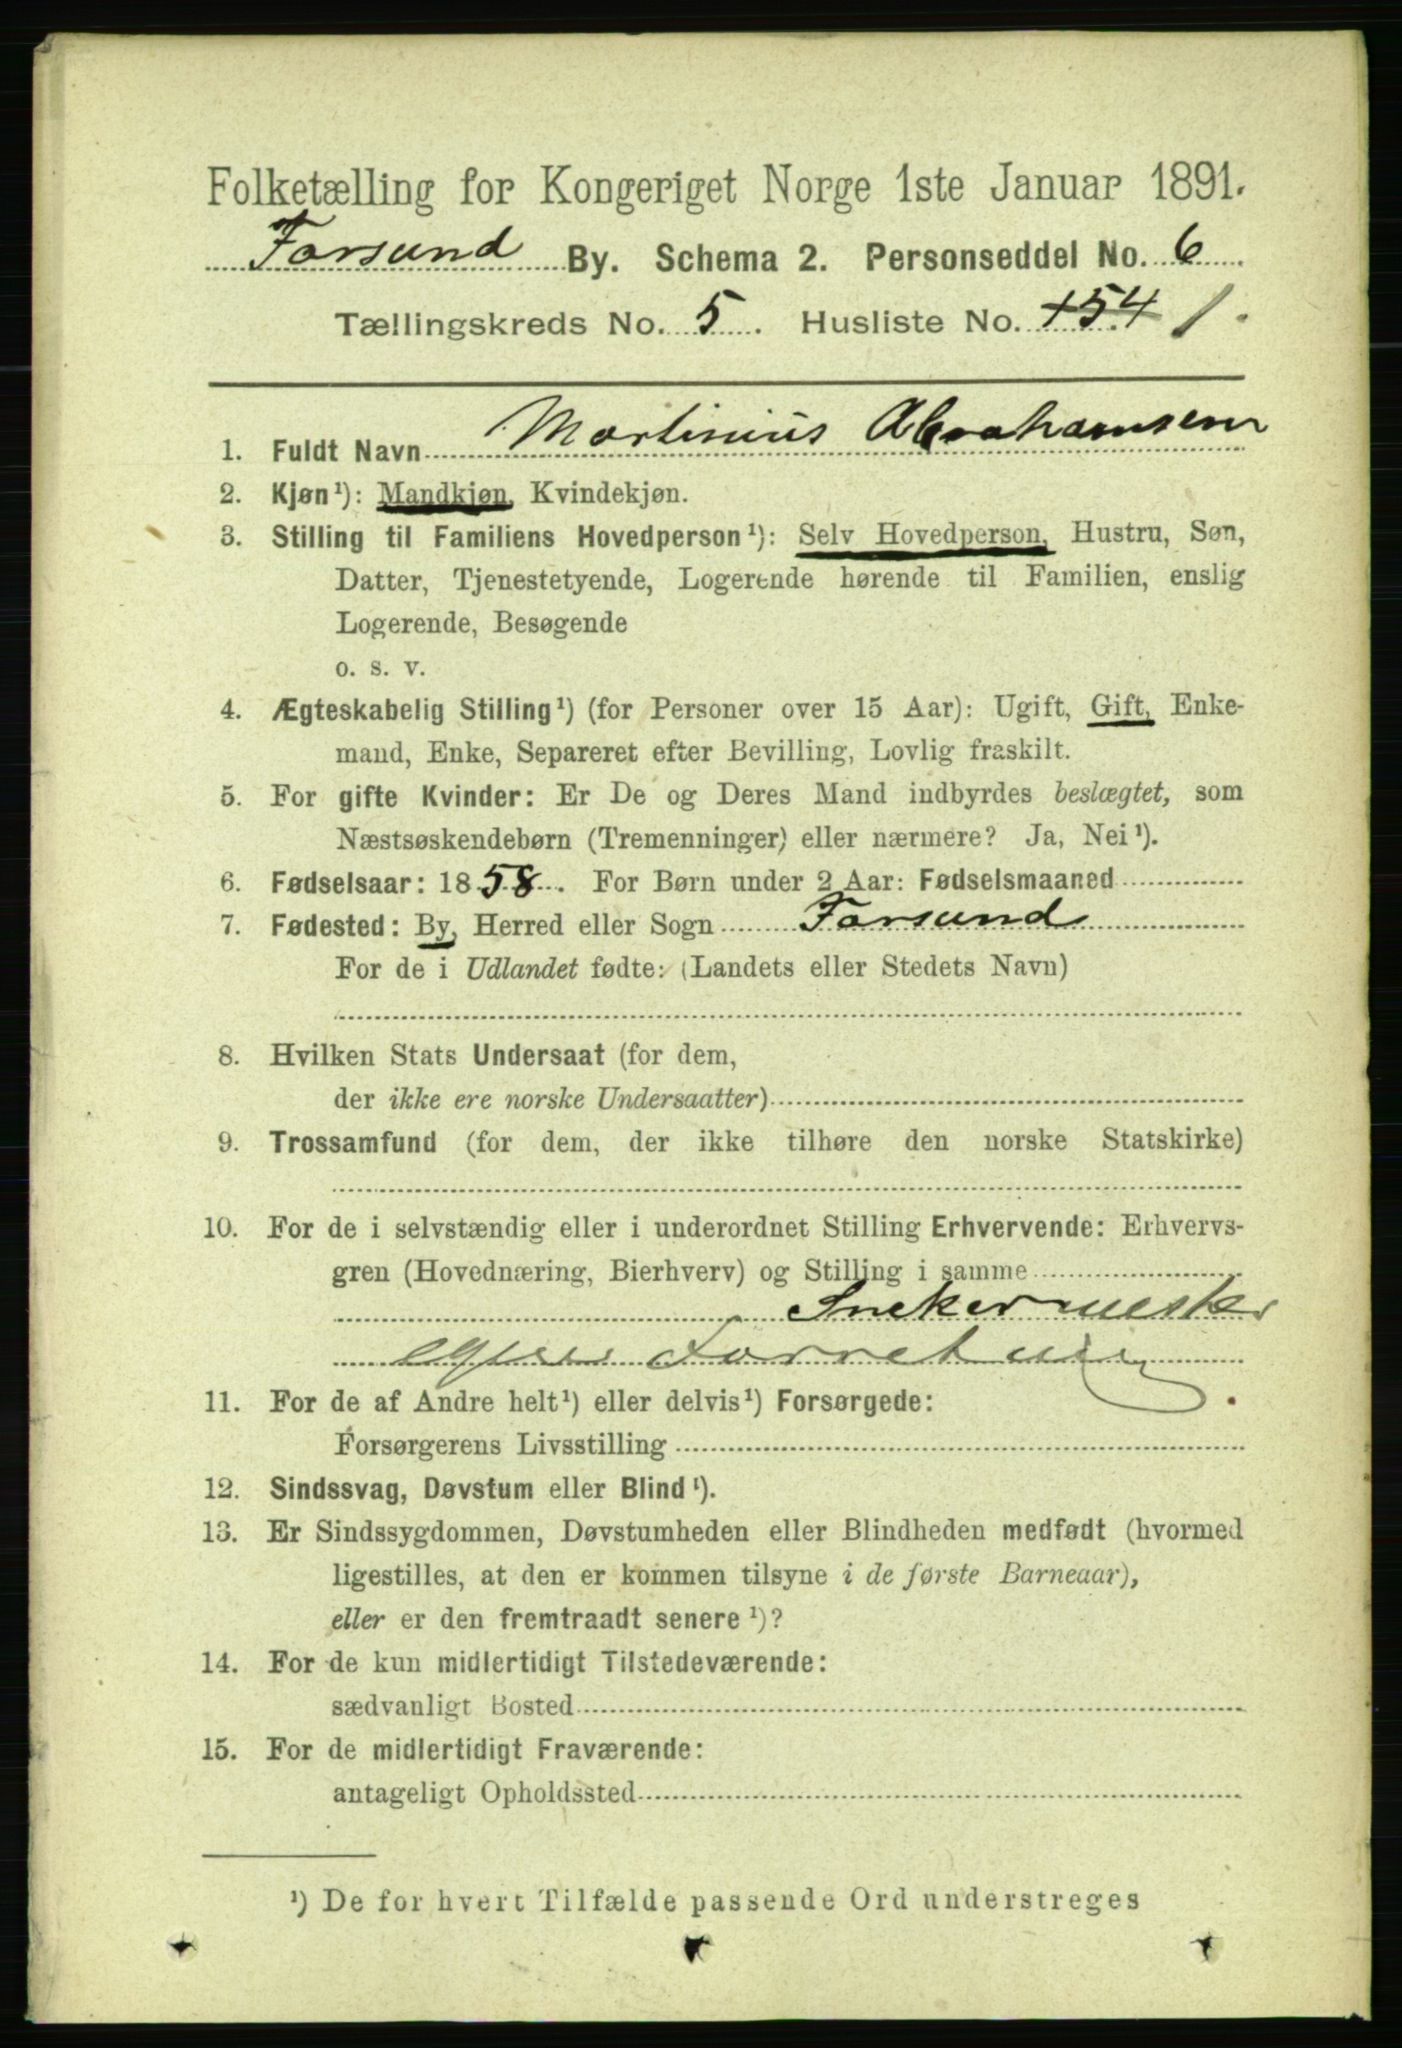 Folketælling for Kongeriget Norge 1ste Januar 1891.
Farsund By. Schema 2. Personseddel No. 6
Tællingskreds No. 5. Husliste No. 154 1.
1. Fuldt Navn Martinius Abrahamsen
2. Kjøn¹): Mandkjøn, Kvindekjøn.
3. Stilling til Familiens Hovedperson¹): Selv Hovedperson, Hustru, Søn,
Datter, Tjenestetyende, Logerende hørende til Familien, enslig
Logerende, Besøgende
o. s. v.
4. Ægteskabelig Stilling¹) (for Personer over 15 Aar): Ugift, Gift, Enke-
mand, Enke, Separeret efter Bevilling, Lovlig fraskilt.
5. For gifte Kvinder: Er De og Deres Mand indbyrdes beslægtet, som
Næstsøskendebørn (Tremenninger) eller nærmere? Ja, Nei¹).
6. Fødselsaar: 1858. For Børn under 2 Aar: Fødselsmaaned
7. Fødested: By, Herred eller Sogn Farsund
For de i Udlandet fødte: (Landets eller Stedets Navn)
8. Hvilken Stats Undersaat (for dem,
der ikke ere norske Undersaatter)
9. Trossamfund (for dem, der ikke tilhøre den norske Statskirke)
10. For de i selvstændig eller i underordnet Stilling Erhvervende: Erhvervs-
gren (Hovednæring, Bierhverv) og Stilling i samme
Snekermester
egen Forretning
11. For de af Andre helt¹) eller delvis¹) Forsørgede:
Forsørgerens Livsstilling
12. Sindssvag, Døvstum eller Blind¹).
13. Er Sindssygdommen, Døvstumheden eller Blindheden medfødt (hvormed
ligestilles, at den er kommen tilsyne i de første Barneaar),
eller er den fremtraadt senere¹)?
14. For de kun midlertidigt Tilstedeværende:
sædvanligt Bosted
15. For de midlertidigt Fraværende:
antageligt Opholdssted
¹) De for hvert Tilfælde passende Ord understreges